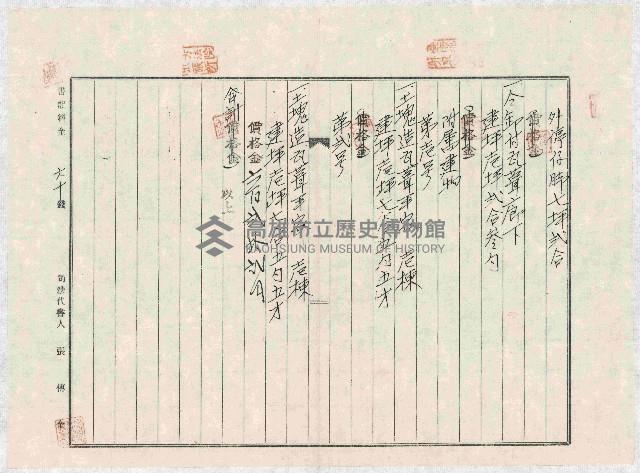 外停仔脚七坪弐合
價格金
一今年付瓦葺庇下
建坪壱坪弐合叁勺
價格金
附屬建物
第壱号
一土塊造瓦葺平家壱棟
建坪壱坪七合五勺五才
價格金
第弐号
一土塊造瓦葺平家壱棟
建坪壱坪七合五勺五才
價格金六百
合計價格金
以上
書記料金 六十錢
司法代書人 張 傳
高雄市立歷史博物館
KAOHSIUNG MUSEUM OF HISTORY